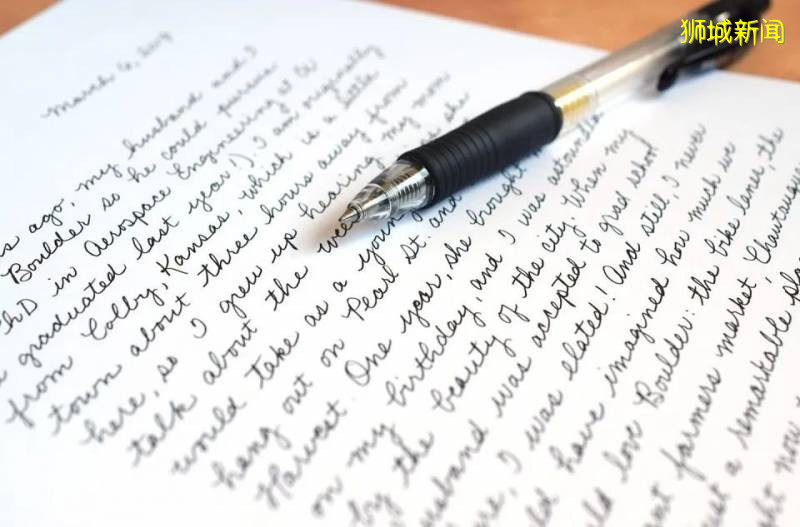 狮城新闻
March 6, 2019
ago, my husband and I
Boulder so he could pursue
PhD in Aerospace Engineering at
graduated last year!). I am originally
from Colby, Kansas, which is a little
town about three hours away from
here, so I grew up hearing my mom
talk about the she
would take as a young
hang out on Pearl St. and
Harvest. One year, she brought
on my birthday, and I was astounded
by the beauty of the city. When my
husband was accepted to grad school
I was elated! And still, I never
have imagined how much we
love Boulder: the bike lanes, the
farmers market, Chautauqua
a remarkable
now